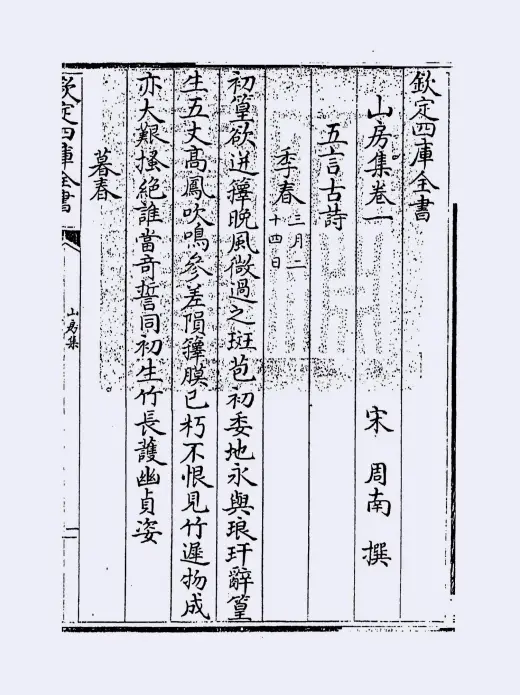 欽定四庫全書
山房集卷一
宋 周南 撰
五言古詩
季春三月二十四日
初篁欲迸籜晚風微過之斑苞初委地永與琅玕辭篁
生五丈髙鳳吹鳴參差隕籜膜已朽不恨見竹遲物成
亦大艱搔絶誰當竒誓同初生竹長護幽貞姿
暮春
欽定四庫全書
山房集
一